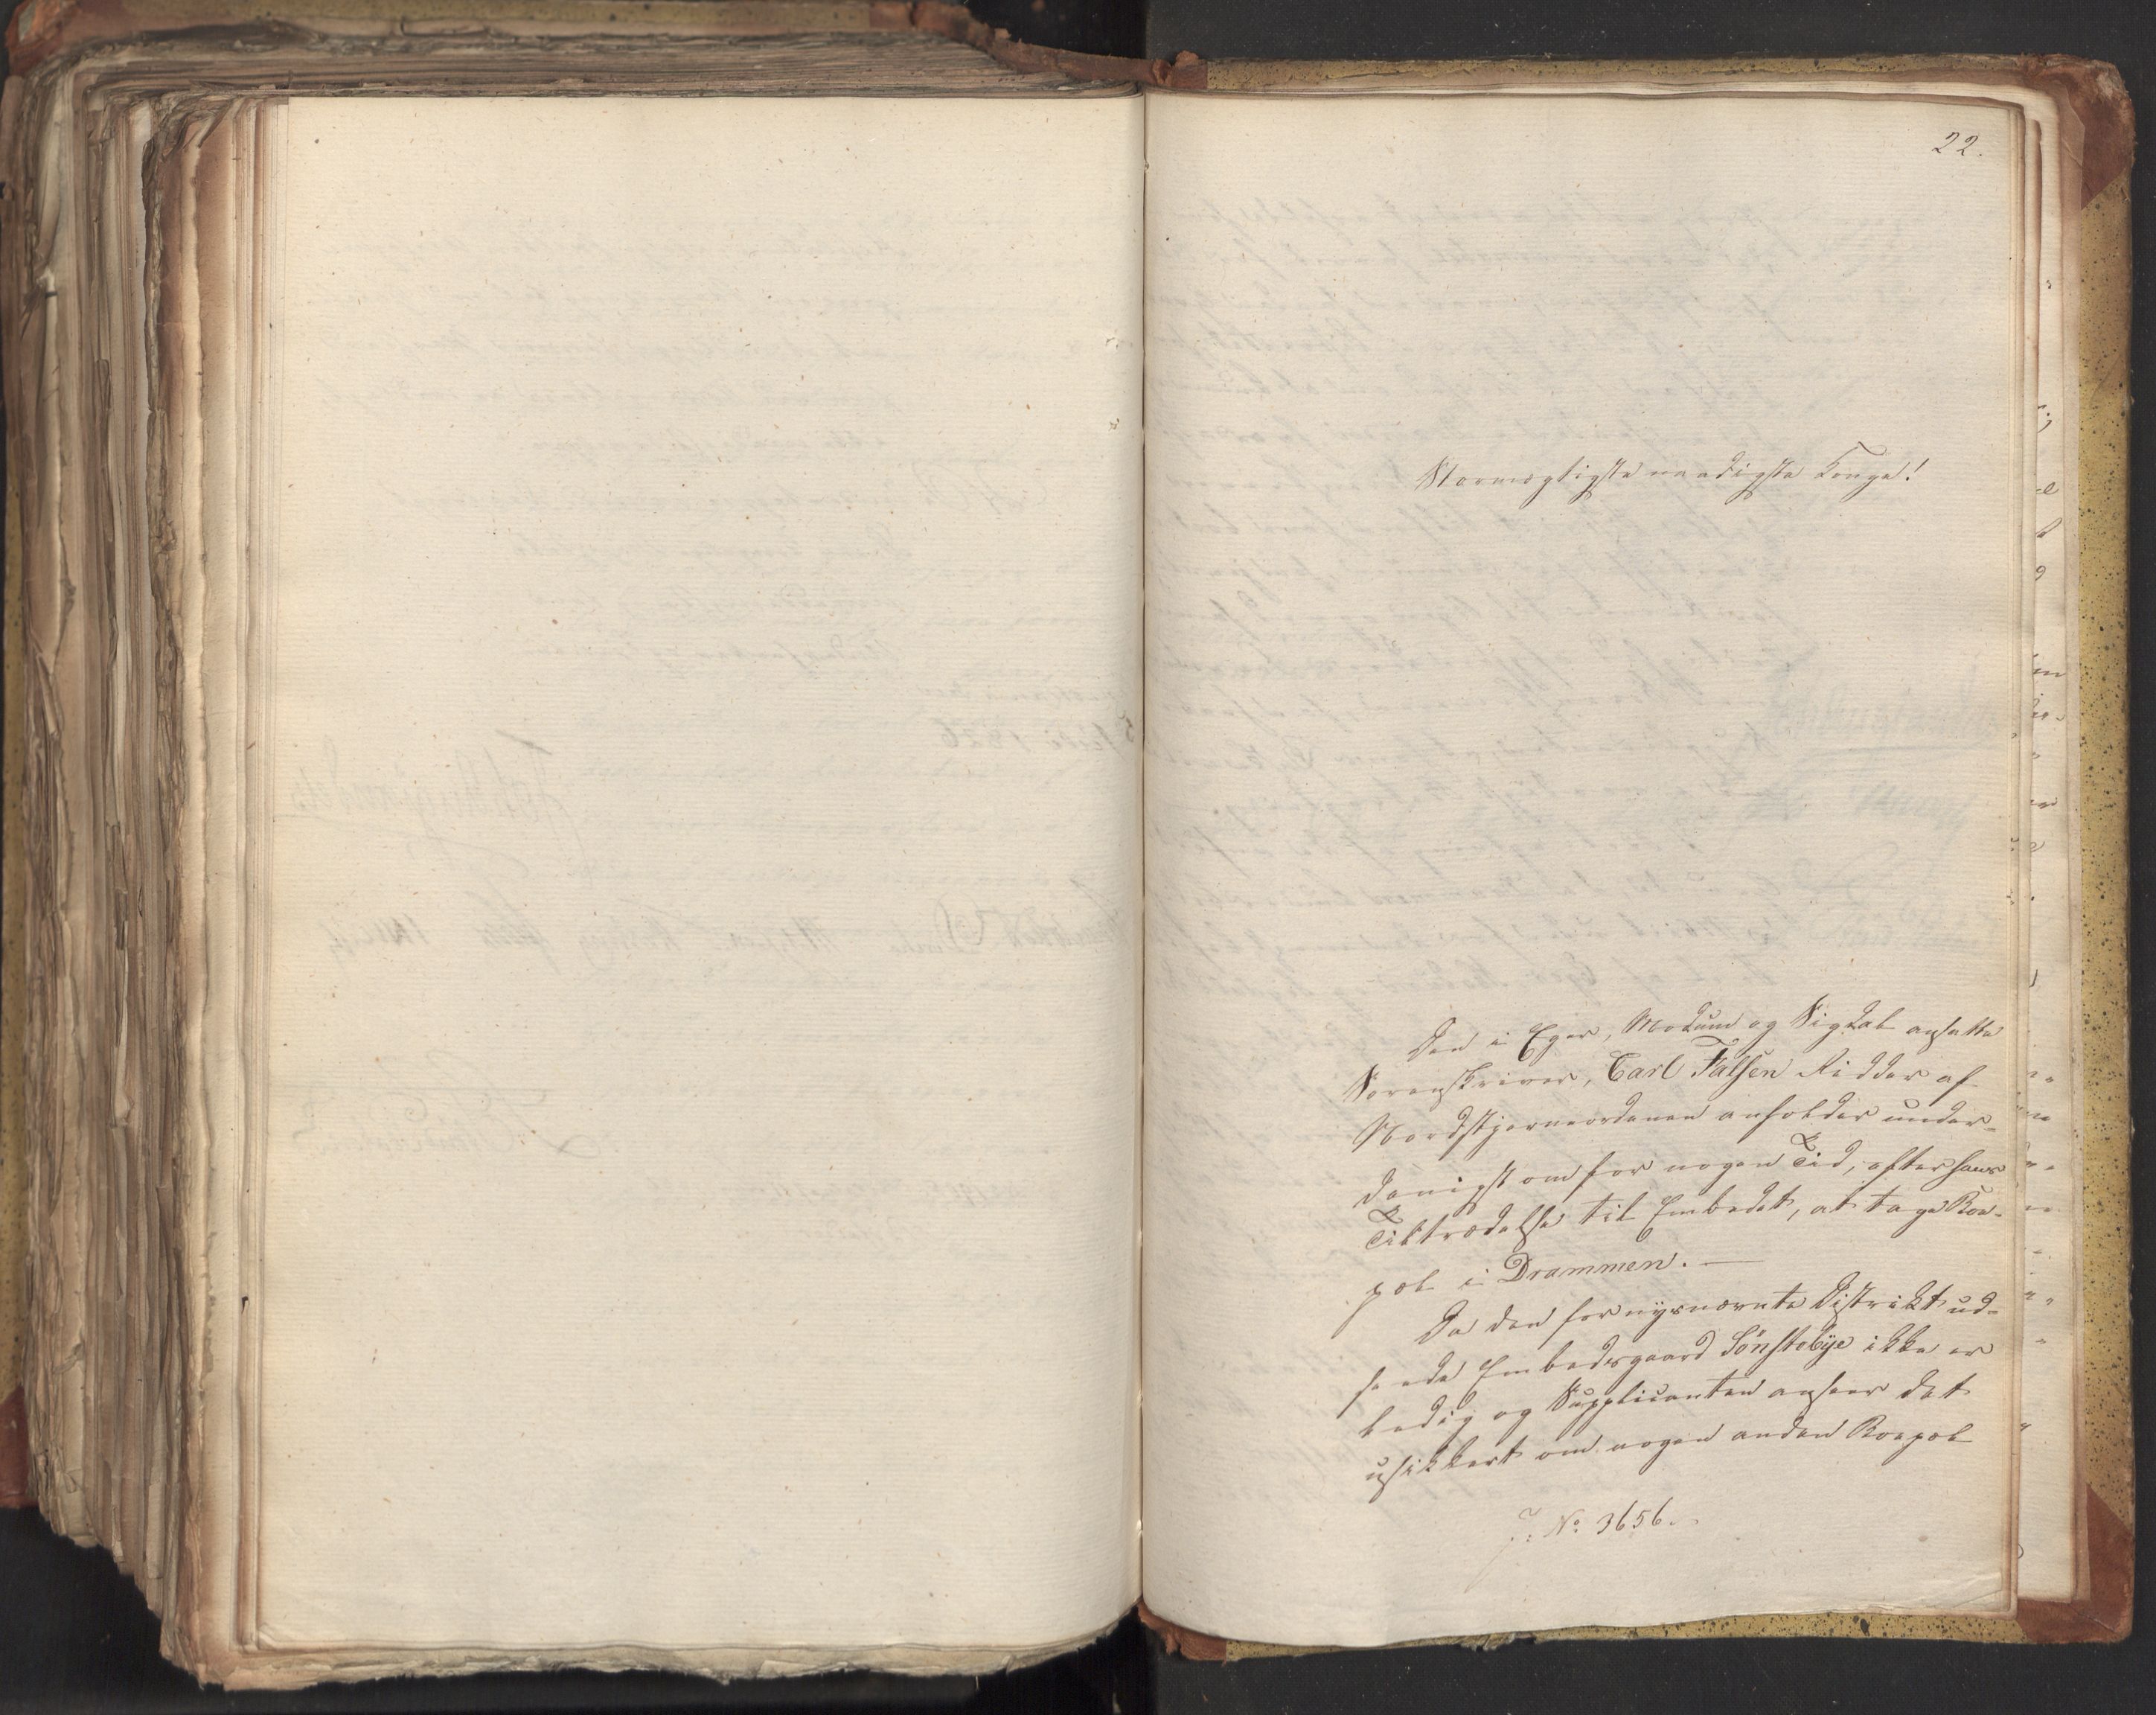 22.
Stormægtigste naadigste Konge!
Den i Eger, Modum og Sigdal ansatte
Sorenskriver, Carl Falsen Ridder af
Nordstjerneordenen anholder under-
danigst om for nogen Tid, efter hans
Tiltrædelse til Embedet, at tage Boe-
pæl i Drammen. —
Da den for nysnævnte District ud-
seede Embedsgaard Sönstebÿe ikke er
ledig og Supplicanten anseer det
usikkert om nogen anden Boepæl
J: No 3656.